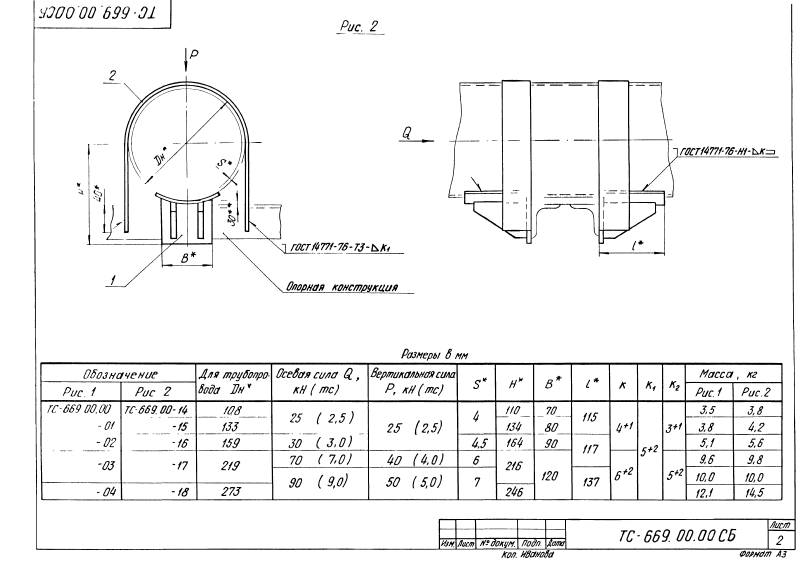 ТС-669.00.00СЖ
Рис. 2
P
2
Dн*
S*
H*
40*
30**
ГОСТ 14771-76-Т3-◺К₁
1
B*
Опорная конструкция
Q
ГОСТ14771-76-Н1-◺К⊐
l*
Размеры в мм
Обозначение
Рис. 1 Рис 2
Для трубопровода Dн*
Осевая сила Q, кН (тс)
Вертикальная сила P, кН (тс)
S* H* B* l* К К₁ К₂
Масса, кг
Рис.1 Рис.2
ТС-669.00.00 ТС-669.00-14 108 25 (2,5) 25 (2,5) 4 110 70 115 4+1 5+2 3+1 3,5 3,8
-01 -15 133 134 80 3,8 4,2
-02 -16 159 30 (3,0) 4,5 164 90 117 5,1 5,6
-03 -17 219 70 (7,0) 40 (4,0) 6 216 120 6+2 5+2 9,6 9,8
90 (9,0) 50 (5,0) 7 137 10,0 10,0
-04 -18 273 246 12,1 14,5
Изм. Лист № докум. Подп. Дата
ТС-669.00.00 СБ
Лист
2
Коп. Иванова
Формат А3